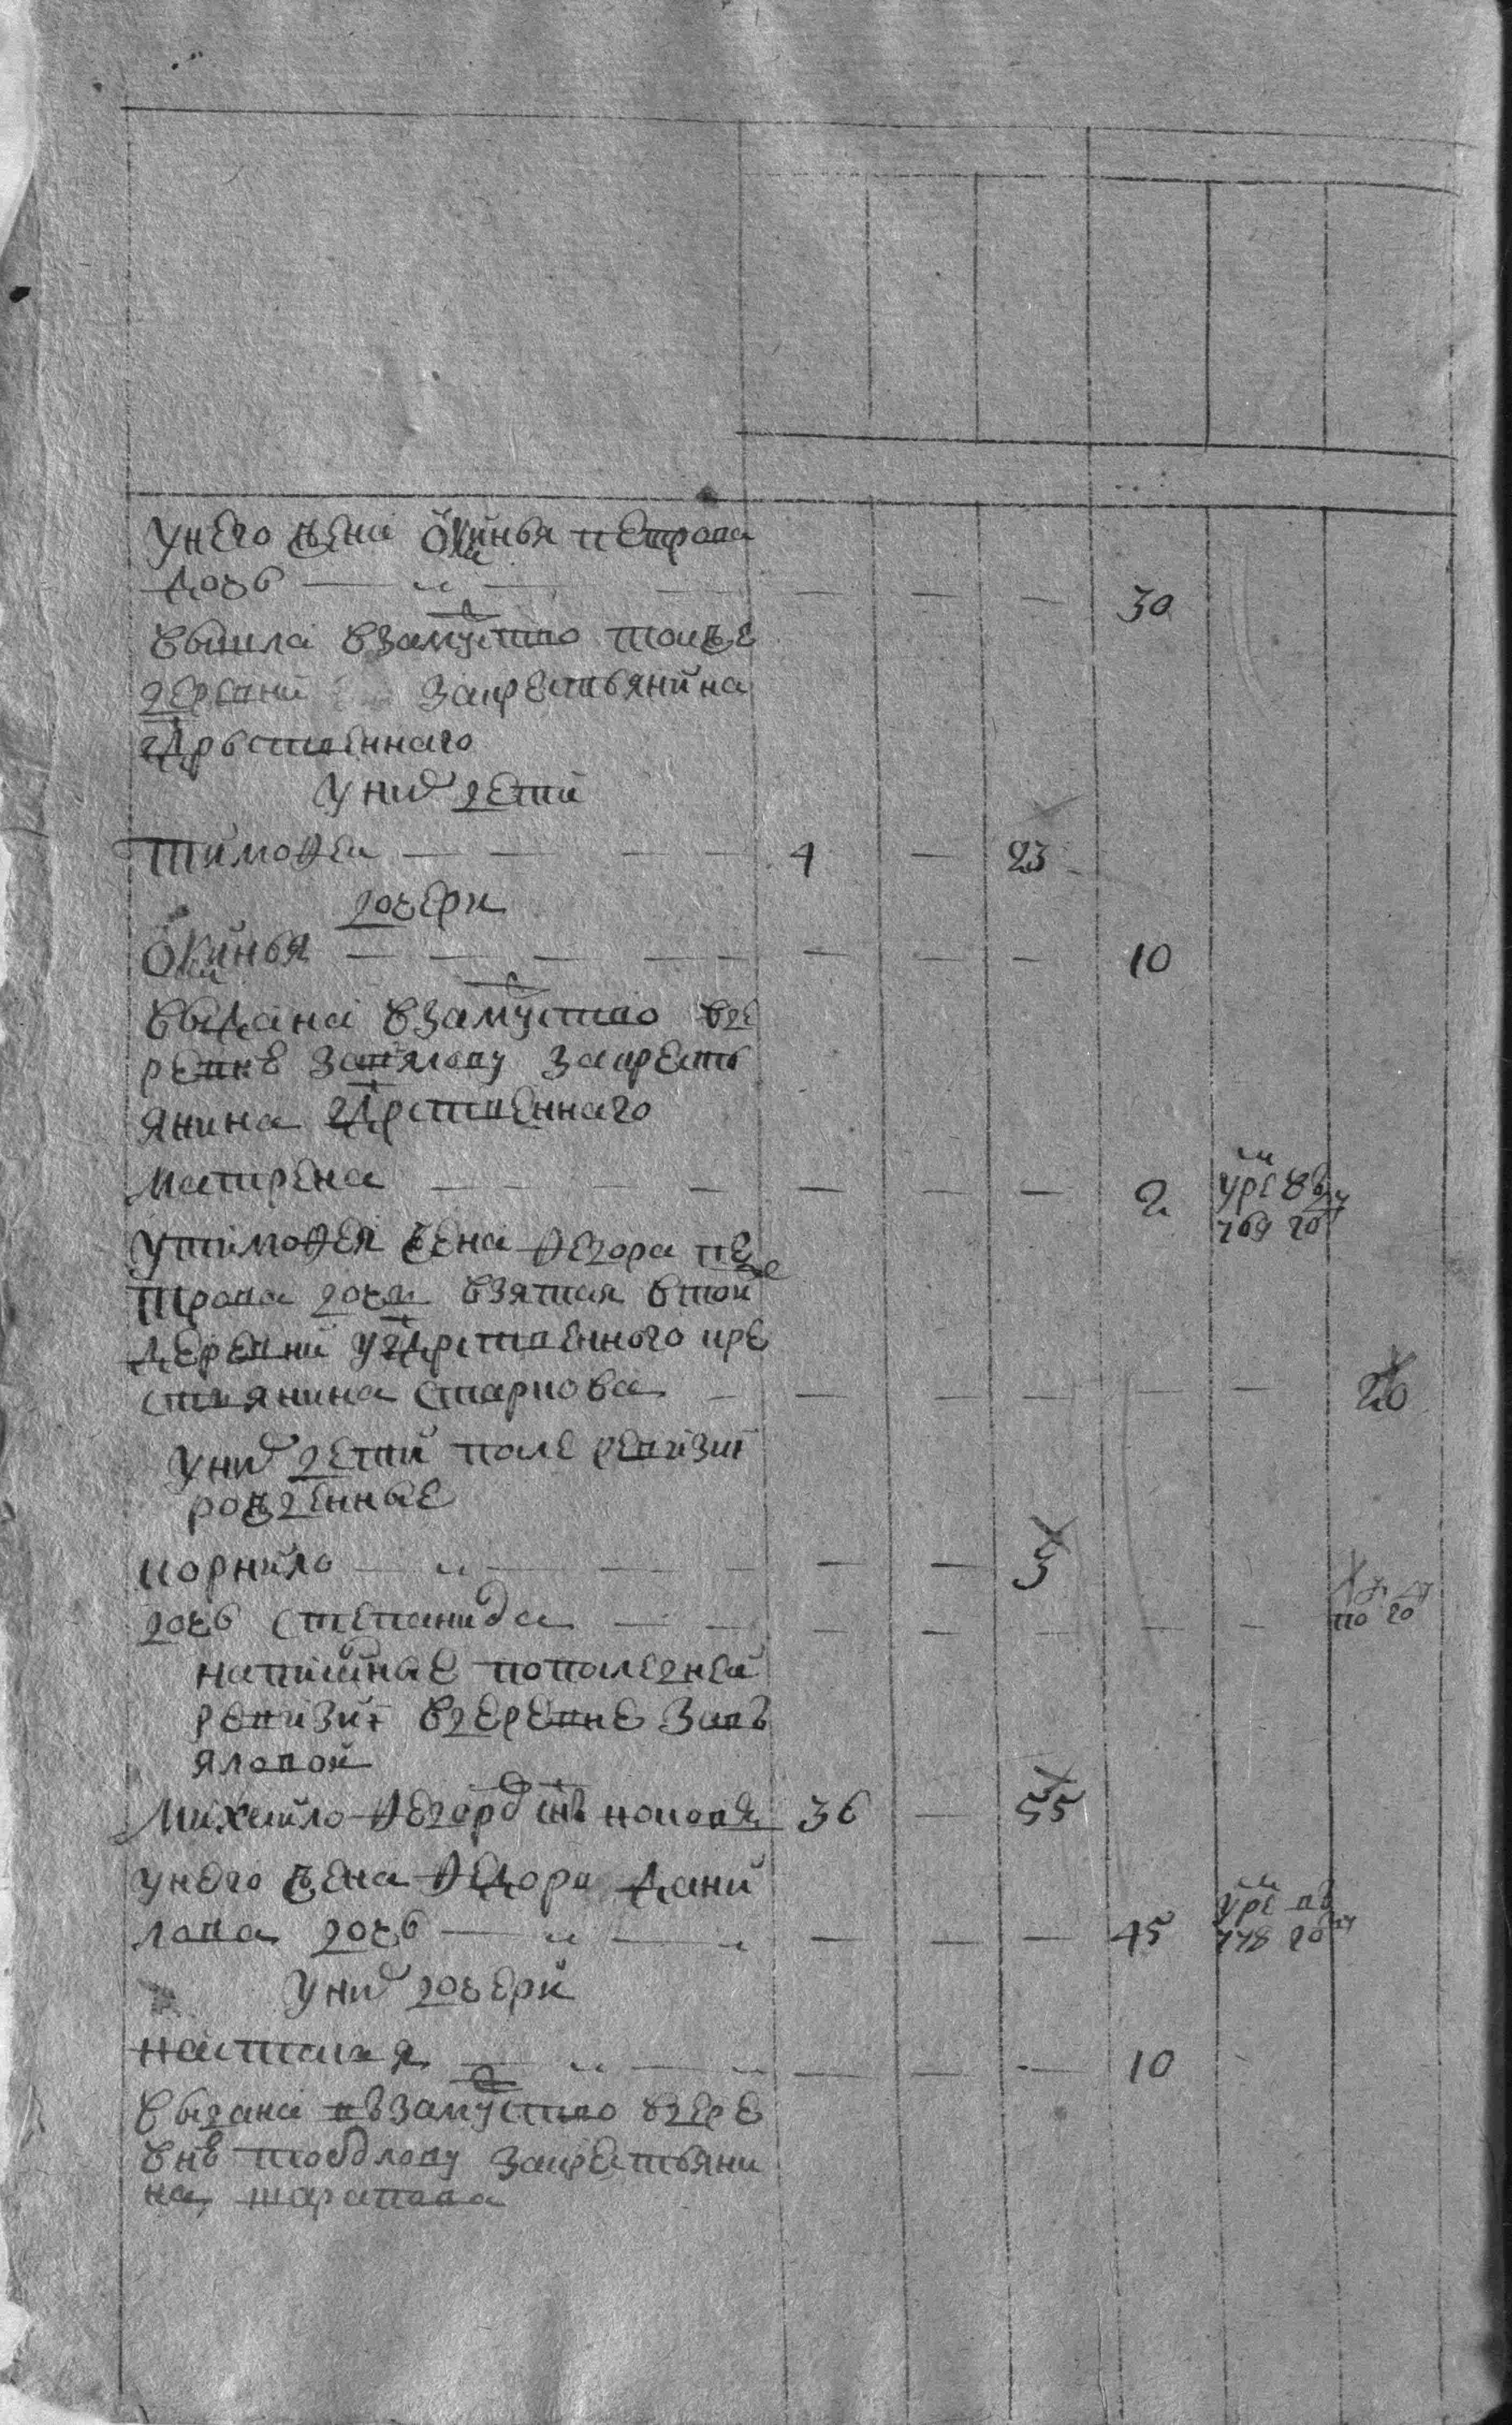 У него жена Окилинья Петрова
дочь — — — — — 30
вышла взамуство тоиже
деревни закрестьянина
гдрьственнаго
У них дети
Тимофеи — 4 — 23
дочери
Окилинья — — — — 10
выдана взамуство вде
ревне Завялову закресть
янина гдрственнаго
Матрена — — — — 2 умре въ 769 году
У тимофея жена Федора Пе
трова дочь взятая втои же
деревни у гдрственного кре
стьянина Старкова — — — — — — 20
У них дети после ревизии
рожденные
Корнило — — — 5
дочь Степанида — — — — — —
написанные попоследней
ревизии вдеревне Завь
яловой
Михаило Федоров снъ Коновя 36 — 55
У него жена Федора Дани
лова дочь — — — — 45 умре въ 778 году
У них дочери
Наталия — — — — 10
выдана въ замуство вдере
внѣ закрестьяни
на Шарапова